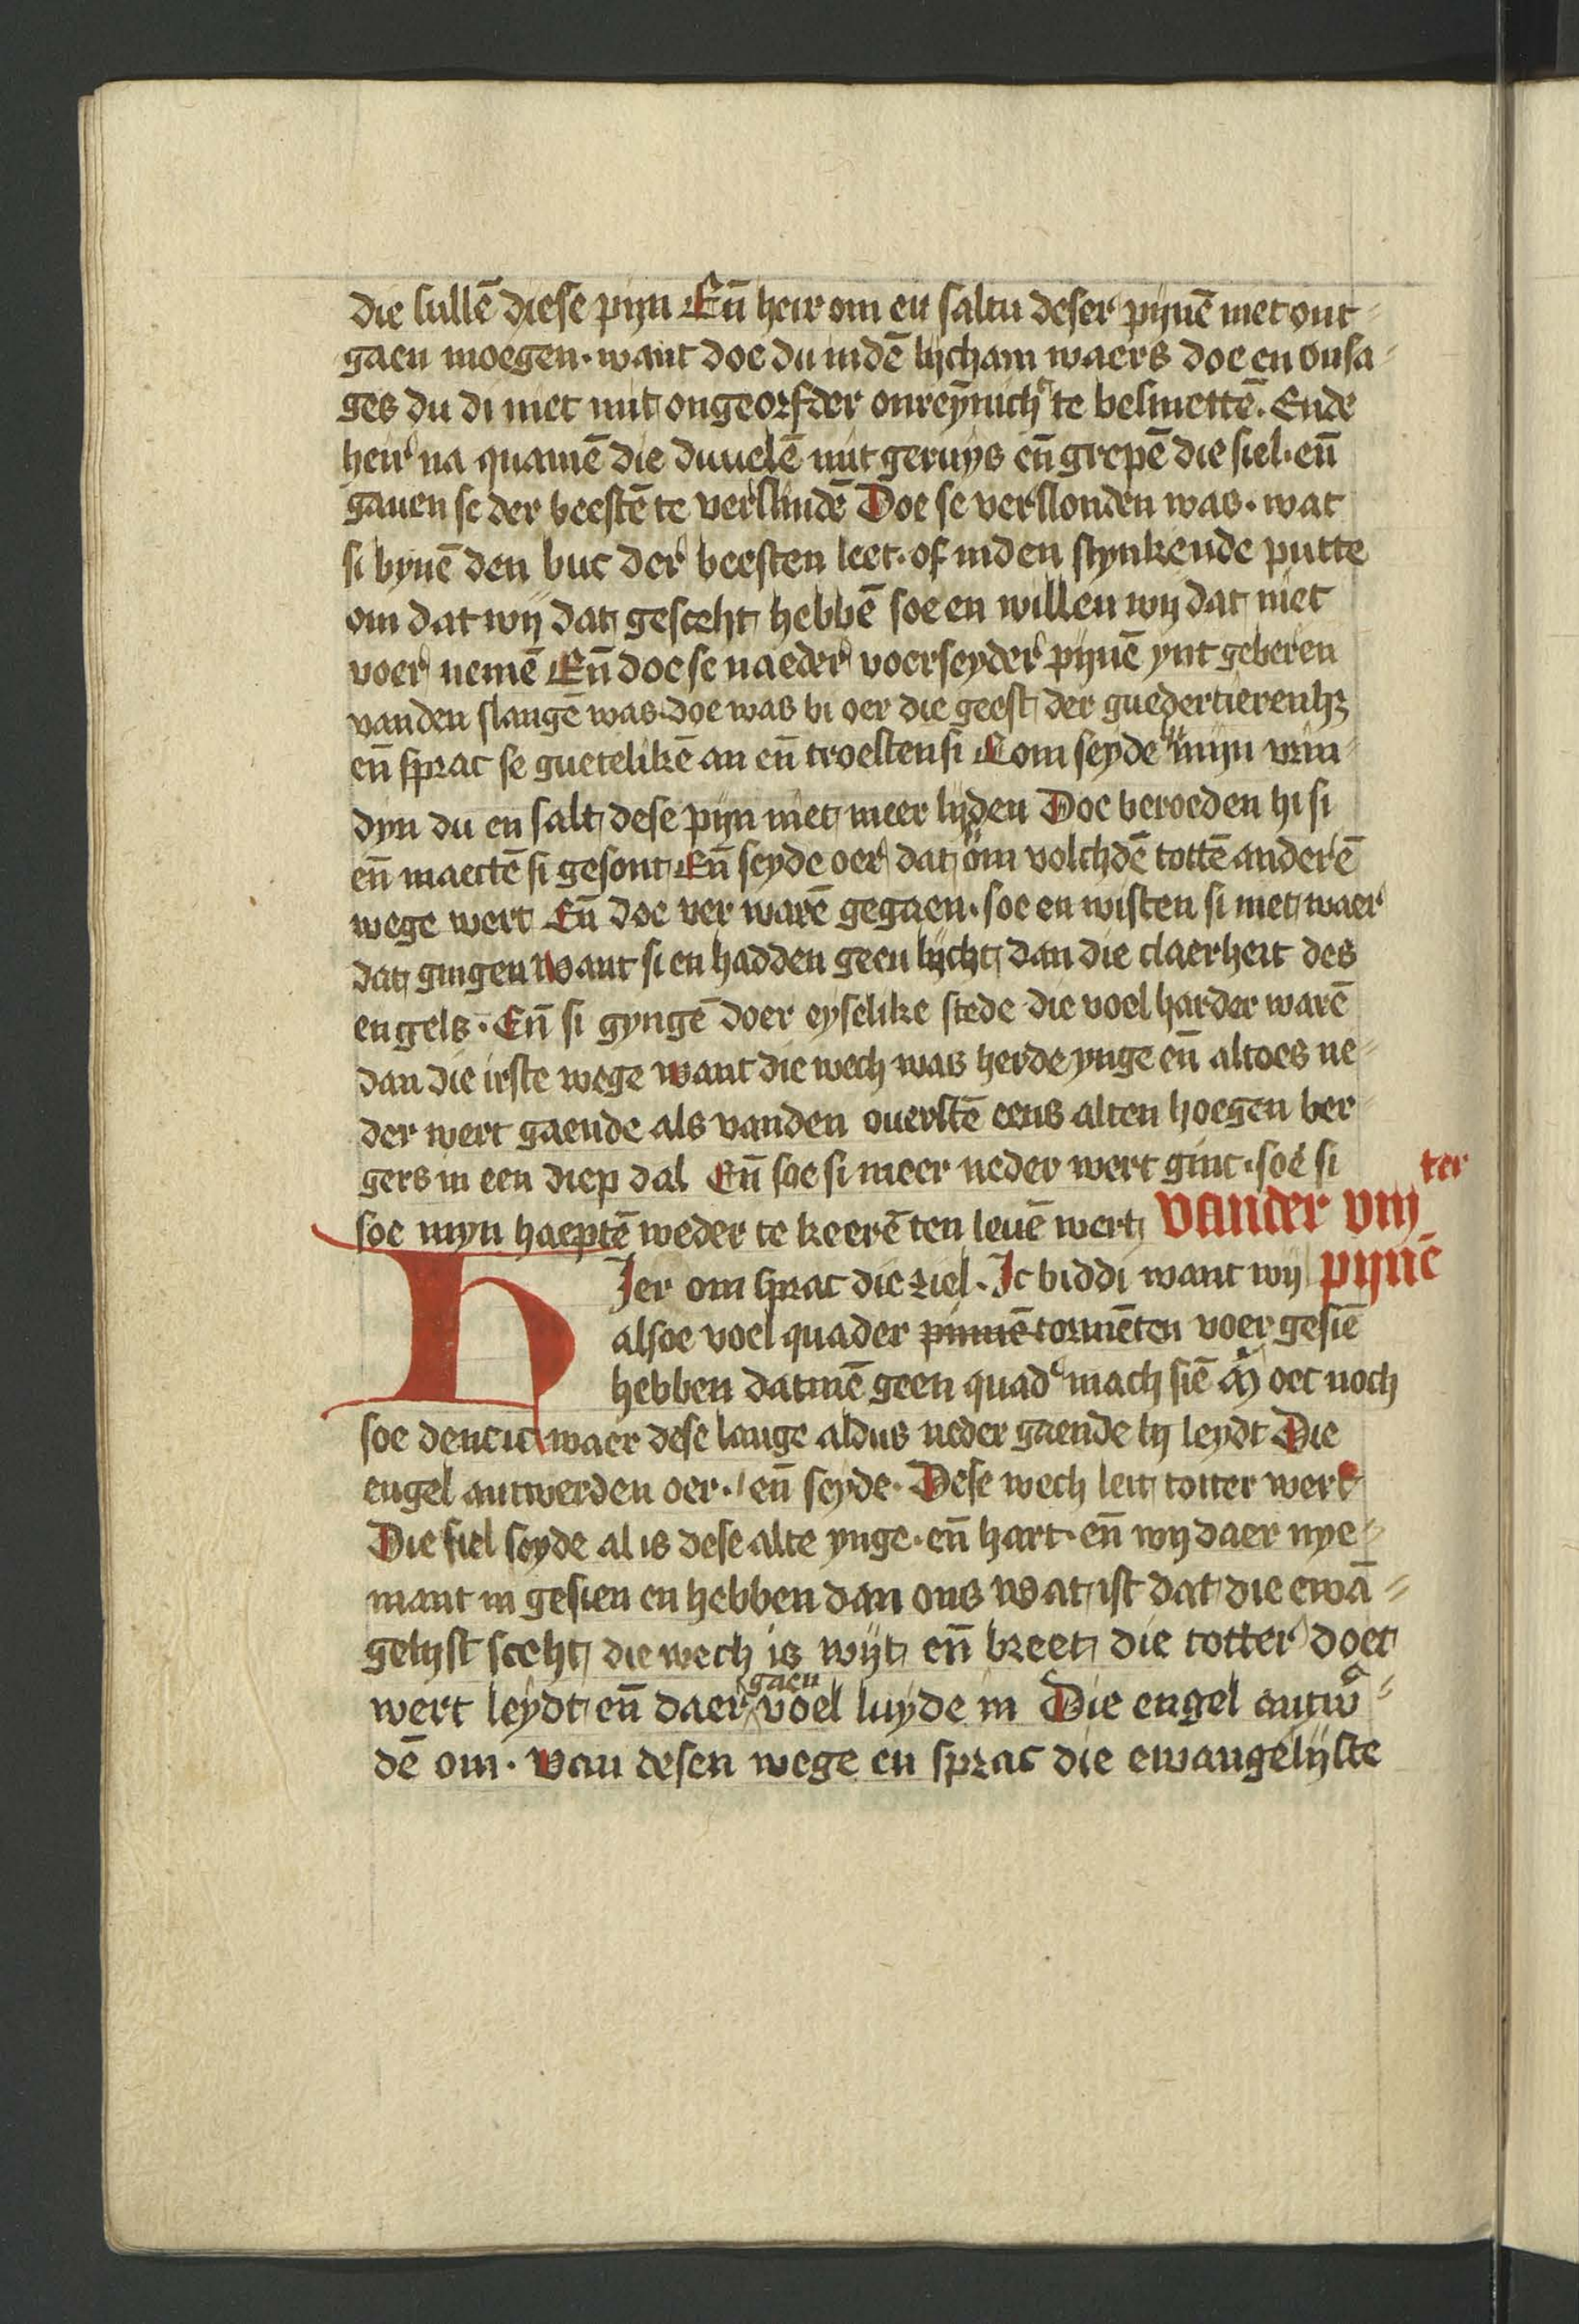 die sullē diese pijn Eñ heir om en saltu deser pijnē niet ont-
gaen moegen · want doe du indē lijcham waers doe en onsa-
ges du di niet mit ongeorfder onreynich te besmettē. Ende
heir na quamē die duuelē mit geruys eñ grepē die siel · eñ
gauen se der beestē te verslindē Doe se verslonden was · wat
si bynē den buc der beesten leet · of inden stynkende putte
om dat wij dat gesceht hebbē soe en willen wij dat niet
voer nemē Eñ doe se na eder voerseyder pijnē ynt geberen
vanden slangē was · doe was bi oer die geest der guedertierenhʒ
eñ sprac se guetelikē an eñ troesten si Com seyde hi mijn vrin-
dyn du en salt dese pijn niet meer lijden Doe beroeden hi si
eñ maectē si gesont Eñ seyde oer dat si om volchdē tottē anderē
wege wert Eñ doe ver warē gegaen · soe en wisten si niet waer
dat gingen want si en hadden geen lijcht dan die claerheit des
engels · Eñ si gyngē doer eyselike stede die voel harder warē
dan die irste wege want die wech was herde ynge eñ altoes ne-
der wert gaende als vanden ouerstē eens alten hoegen ber-
gers in een diep dal Eñ soe si meer neder wert ginc · soe si
soe myn haeptē weder te keerē ten leuē wert vander viij ter
HJer om sprac die ziel · Jc biddi want wij pijnē
alsoe voel quader pinnē tormēten voer gesiē
hebben datmē geen quad mach siē oec noch
soe dencic waer dese lange aldus neder gaende bij leydt Die
engel antwerden oer · eñ seyde · Dese wech leit totter wert
Die siel seyde al is dese alte ynge · eñ hart · eñ wij daer nye-
mant in gesien en hebben dan ons wat ist dat die ewā-
gelyst sceht die wech is wijt eñ breet die totter doet
wert leydt eñ daer gaen voel luyde in Die engel antw-
dē om · van desen wege en sprac die ewangelijste